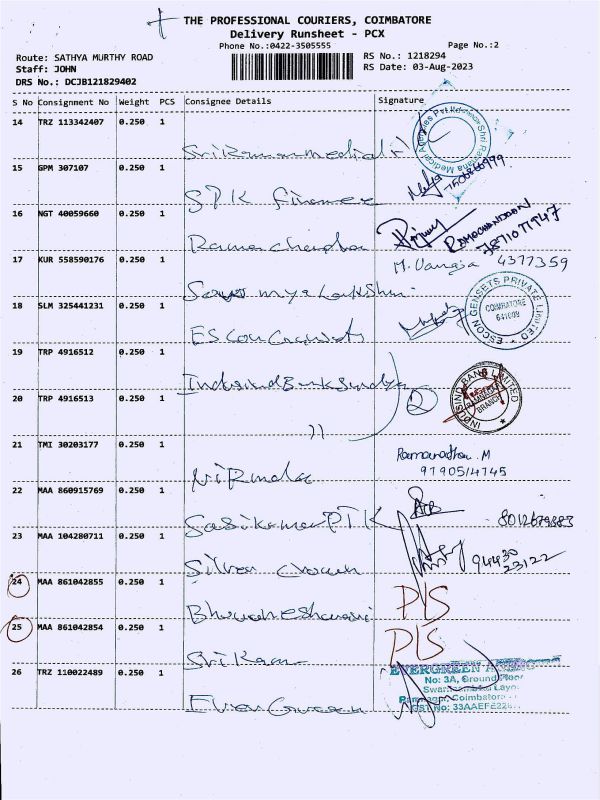 THE PROFESSIONAL COURIERS, COIMBATORE
Delivery Runsheet - PCX
Phone No.:0422-3505555
Page No.:2
Route: SATHYA MURTHY ROAD
RS No.: 1218294
Staff: JOHN
RS Date: 03-Aug-2023
DRS No.: DCJB121829402
S No Consignment No Weight PCS Consignee Details Signature
14 TRZ 113342407 0.250 1
Sri Raman medical
15 GPM 307107 0.250 1
SPK finance
16 NGT 40059660 0.250 1
RAMACHANDRAN
Ramachandran
17 KUR 558590176 0.250 1 M. Vanaja 4377359
18 SLM 325441231 0.250 1
ESCON GENSETS PRIVATE LIMITED
COIMBATORE
641009
19 TRP 4916512 0.250 1
IndusindBank
INDUSIND BANK LIMITED
BRANCH
20 TRP 4916513 0.250 1
2
21 TMI 30203177 0.250 1
Ramanathan. M
Nirmala
22 MAA 860915769 0.250 1
Sasikumar PTK
23 MAA 104280711 0.250 1
94430
23122
Silver crown
24 MAA 861042855 0.250 1
D/S
Bhuvaneshwari
25 MAA 861042854 0.250 1
D/S
Sri Ram
26 TRZ 110022489 0.250 1
EVERGREEN
No: 3A, Ground Floor
Coimbatore
GST No: 33AAEFE22
Ever Green